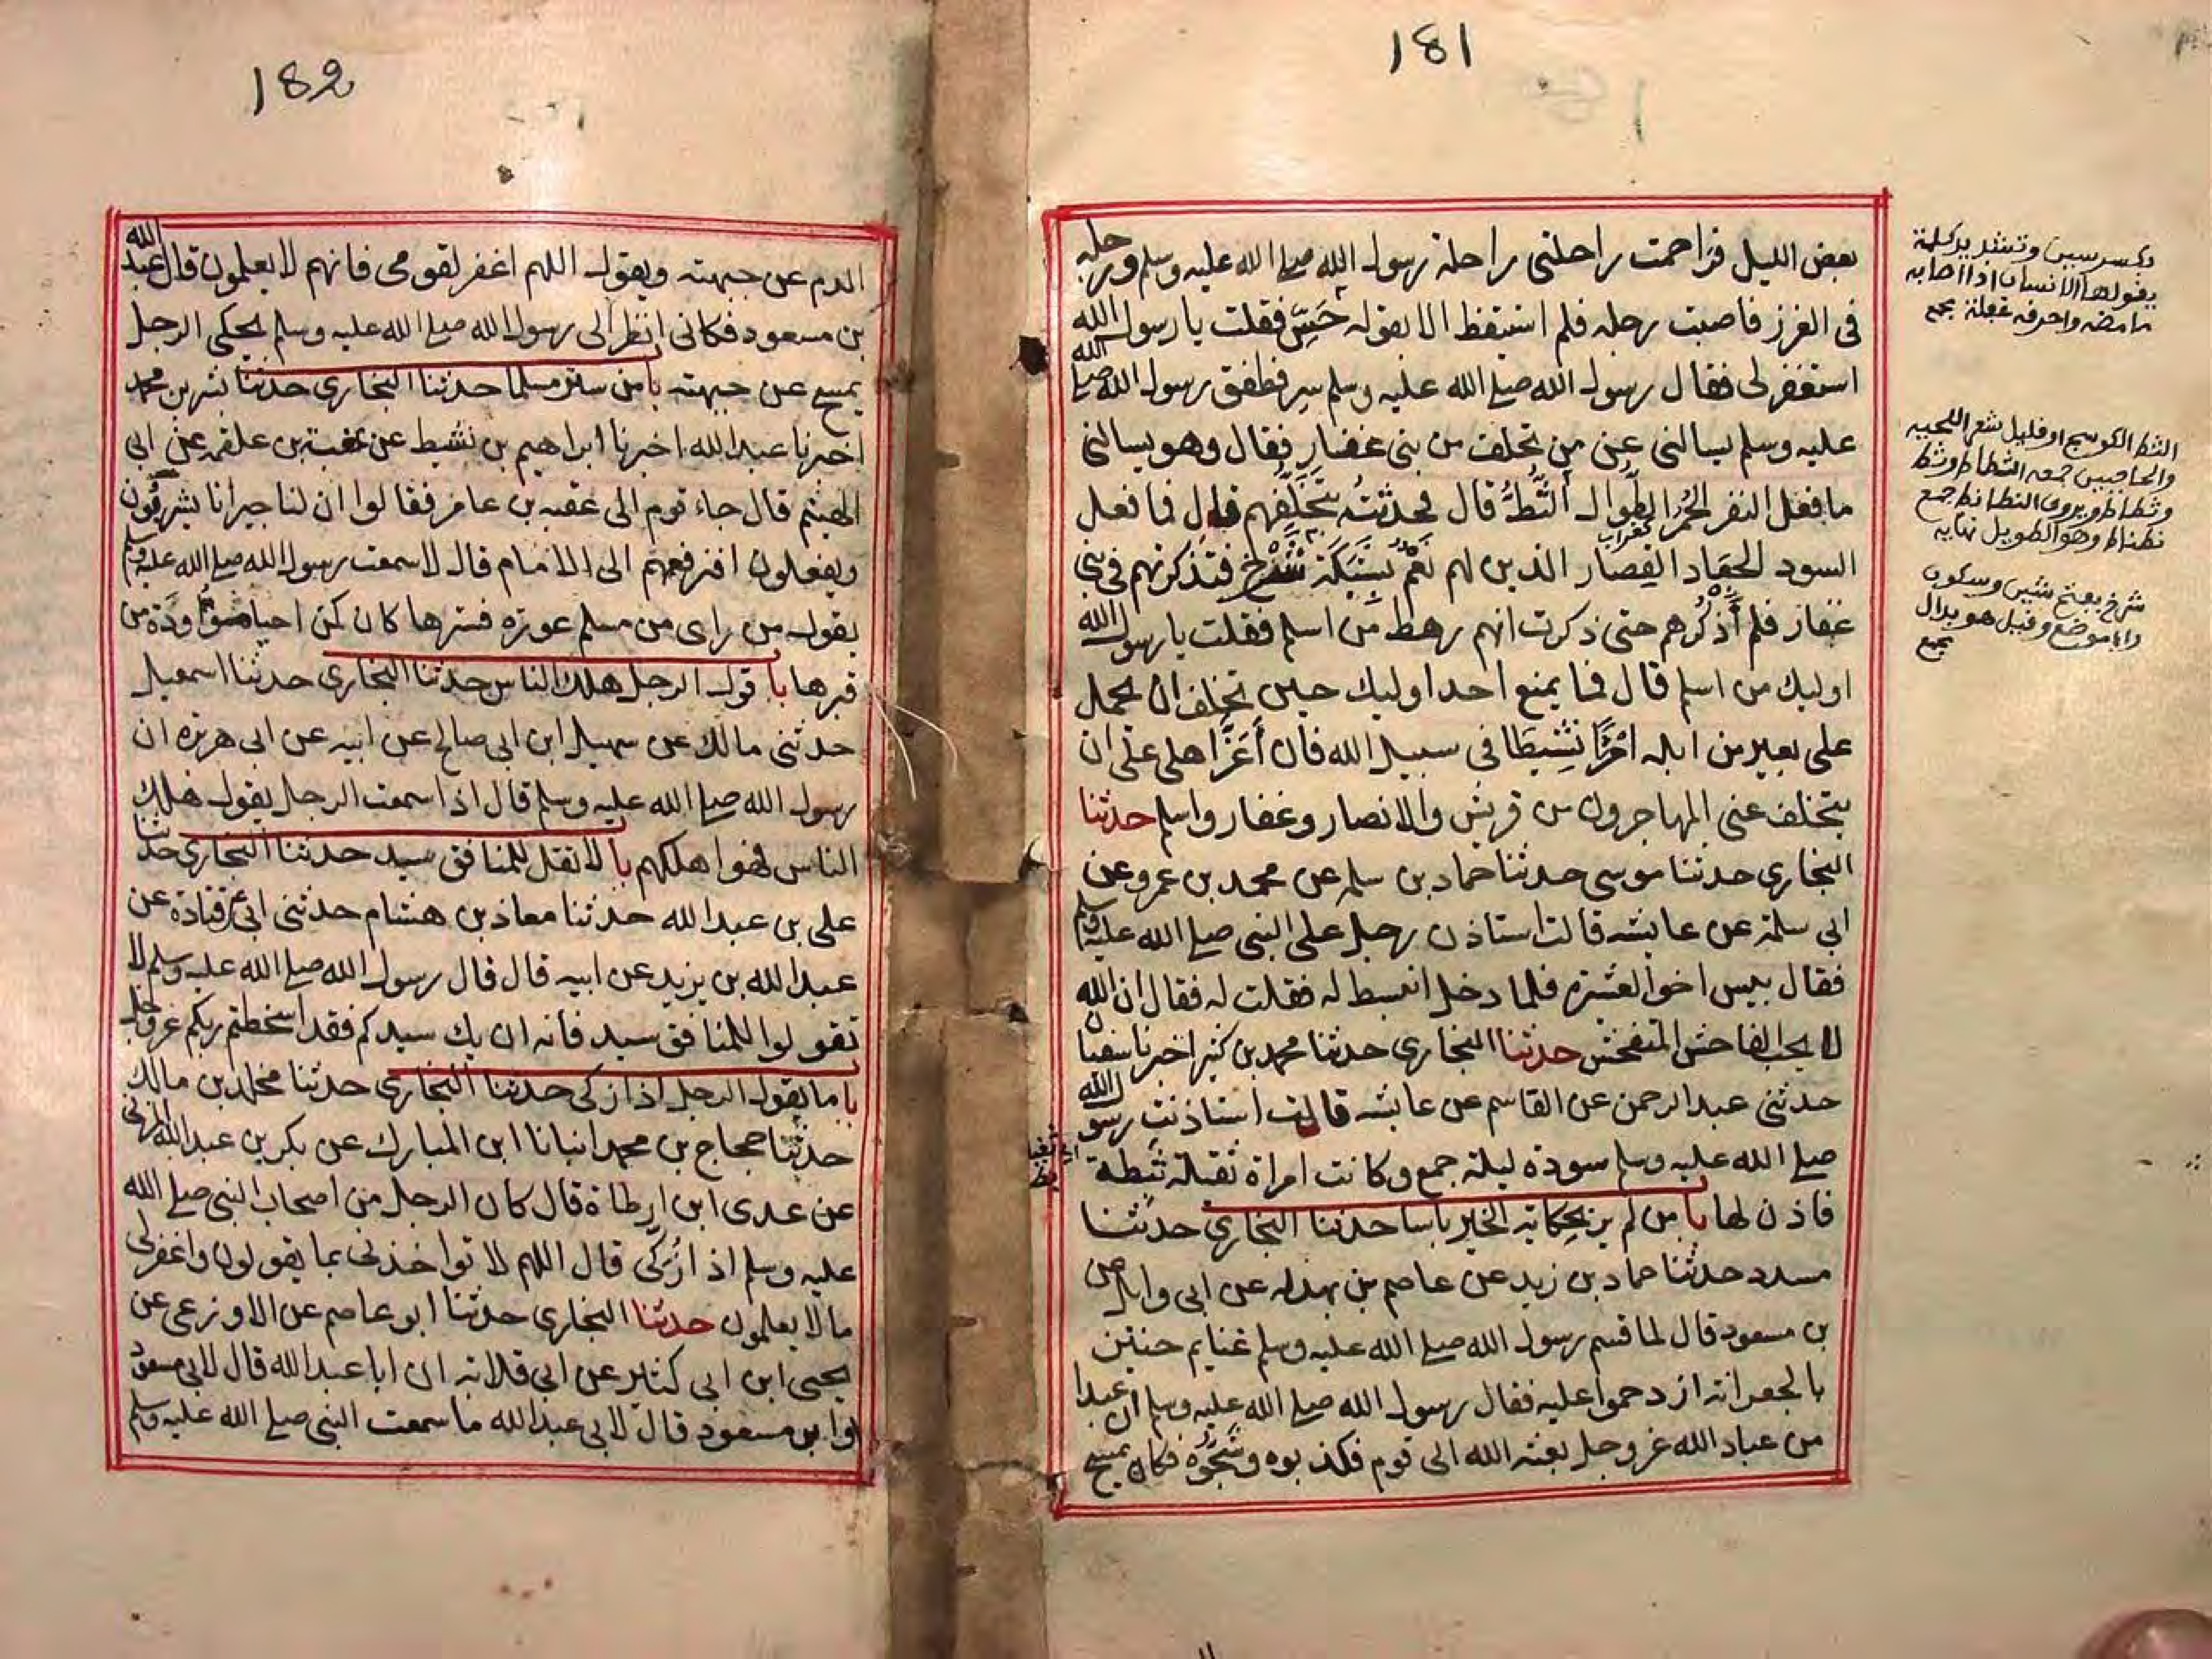 181
بعض الليل فزاحمت راحلتي راحلة رسول الله صلے الله عليه وسلم ورجله
فى الغرز فاصبت رجله فلم استيقظ الا بقوله حَسِّ فقلت يا رسول الله
استغفر لى فقال رسول الله صلے الله عليه وسلم سِر فطفق رسول الله صلے الله
عليه وسلم يسالنى عن من تخلف من بنى غفار فقال وهو يسالنى
ما فعل النفر الحُمُر الطِّوال الثِّطُّ قال فحدثتُه بتَخَلُّفهم قال فما فعل
السود الجعاد القِصار الذين لهم نَعَمٌ بشَبَكَة شَرْخ فتذكرتهم فى بنى
غفار فلم أَذْكُرهم حتى ذكرت انهم رهط من اسلم فقلت يا رسول الله
اوليك من اسلم قال فما يمنع احد اوليك حين تخلف ان يحمل
على بعير من ابله امْرَءًا نَشِيطَا فى سبيل الله فان أَعَزَّ اهلى على ان
يتخلف عنى المهاجرون من قريش والانصار وغفار واسلم حدثنا
البخارى حدثنا موسى حدثنا حماد بن سلمه عن محمد بن عمرو عن
ابى سلمة عن عايشه قالت استاذن رجل على النبى صلے الله عليه وسلم
فقال بيس اخو العشيرة فلما دخل انبسط له فقلت له فقال ان الله
لا يحب الفاحش المتفحش حدثنا البخارى حدثنا محمد بن كثير اخبرنا سفيان
حدثنى عبد الرحمن عن القاسم عن عايشه قالت استاذنت رسول الله
صلے الله عليه وسلم سودة ليلة جمع وكانت امراة ثقيلة ثبطة
فاذن لها با من لم ير بحكاية الخير باسا حدثنا البخارى حدثنا
مسدد حدثنا حماد بن زيد عن عاصم بن بهدله عن ابى وايل عن
بن مسعود قال لما قسم رسول الله صلے الله عليه وسلم غنايم حنين
بالجعرانة ازدحموا عليه فقال رسول الله صلے الله عليه وسلم ان عبدا
من عباد الله عز وجل بعثه الله الى قوم فكذبوه وشَجُّوه فكان يمسح
بكسر سين وتشديد كلمة
يقولها الانسان اذا اصابه
ما مضه واحرقه غفلة مجمع
الثط الكوسج او قليل شعر اللحيه
والحاجبين جمعه
ويروى النطانط جمع
نطناط وهو الطويل نهايه
شرخ بفتح شين وسكون
راء موضع وقيل هو بدال
مجمع
182
الدم عن جبهته ويقول اللهم اغفر لقومى فانهم لا يعلمون قال عبد الله
بن مسعود فكانى انظر الى رسول الله صلے الله عليه وسلم يحكى الرجل
يمسح عن جبهته با من ستر مسلما حدثنا البخارى حدثنا بشر بن محمد
اخبرنا عبد الله اخبرنا ابراهيم بن نشيط عن كعب بن علقمه عن ابى
الهيثم قال جاء قوم الى عقبه بن عامر فقالوا ان لنا جيرانا يشربون
ويفعلون افنرفعهم الى الامام قال لا سمعت رسول الله صلے الله عليه وسلم
يقول من راى من مسلم عورة فسترها كان كمن احيا موؤدة من
قبرها با قول الرجل هلك الناس حدثنا البخارى حدثنا اسمعيل
حدثنى مالك عن سهيل ابن ابى صالح عن ابيه عن ابى هريره ان
رسول الله صلے الله عليه وسلم قال اذا سمعت الرجل يقول هلك
الناس فهوا هلكهم با لا تقل للمنافق سيد حدثنا البخارى حدثنا
على بن عبد الله حدثنا معاذ بن هشام حدثنى ابى عن قتادة عن
عبد الله بن يزيد عن ابيه قال قال رسول الله صلے الله عليه وسلم لا
تقولوا للمنافق سيد فانه ان يك سيدكم فقد اسخطتم ربكم عز وجل
با ما يقول الرجل اذا زكى حدثنا البخارى حدثنا مخلد بن مالك
حدثنا حجاج بن محمد انبانا ابن المبارك عن بكر بن عبد الله المزنى
عن عدى ابن ارطاة قال كان الرجل من اصحاب النبى صلے الله
عليه وسلم اذا زُكّى قال اللهم لا تواخذنى بما يقولون واغفر لى
ما لا يعلمون حدثنا البخارى حدثنا ابو عاصم عن الاوزعى عن
يحيى ابن ابى كثير عن ابى قلابة ان ابا عبد الله قال لابى مسعود
او ابو مسعود قال لابى عبد الله ما سمعت النبى صلے الله عليه وسلم